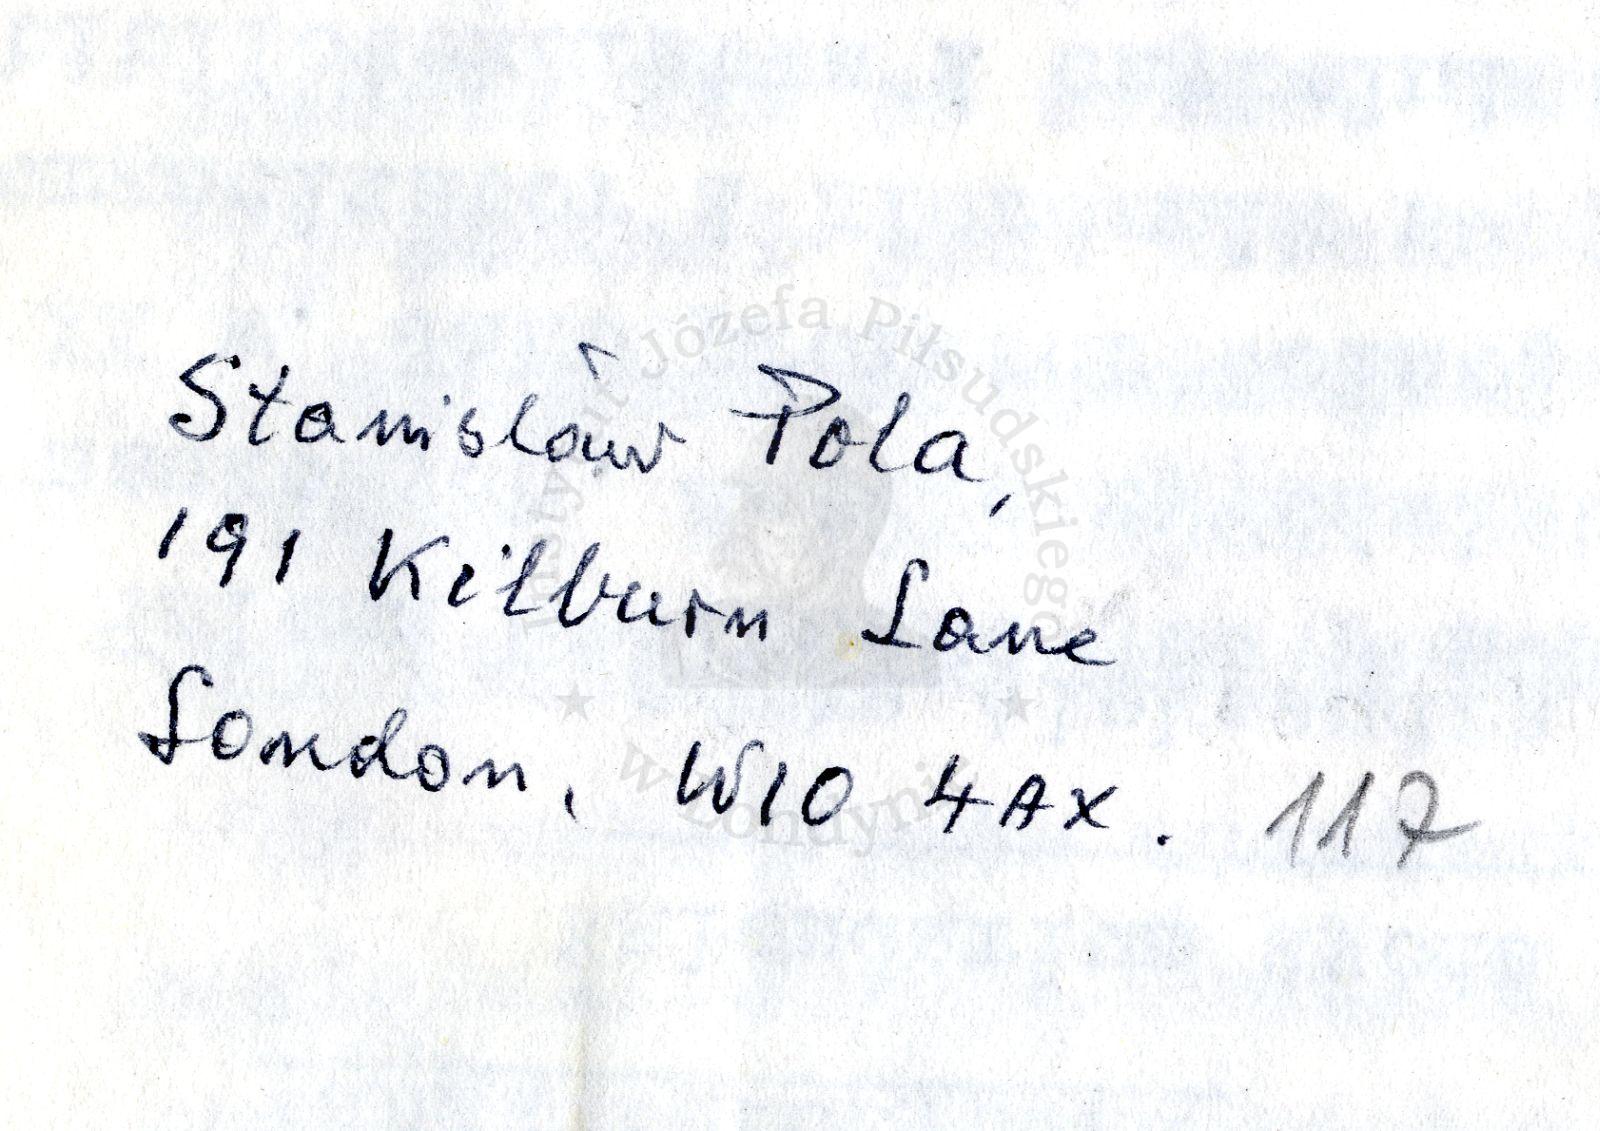 Stanisław Pola,
191 Kilburn Lane
London, W10 4AX. 117
Instytut Józefa Piłsudskiego
w Londynie